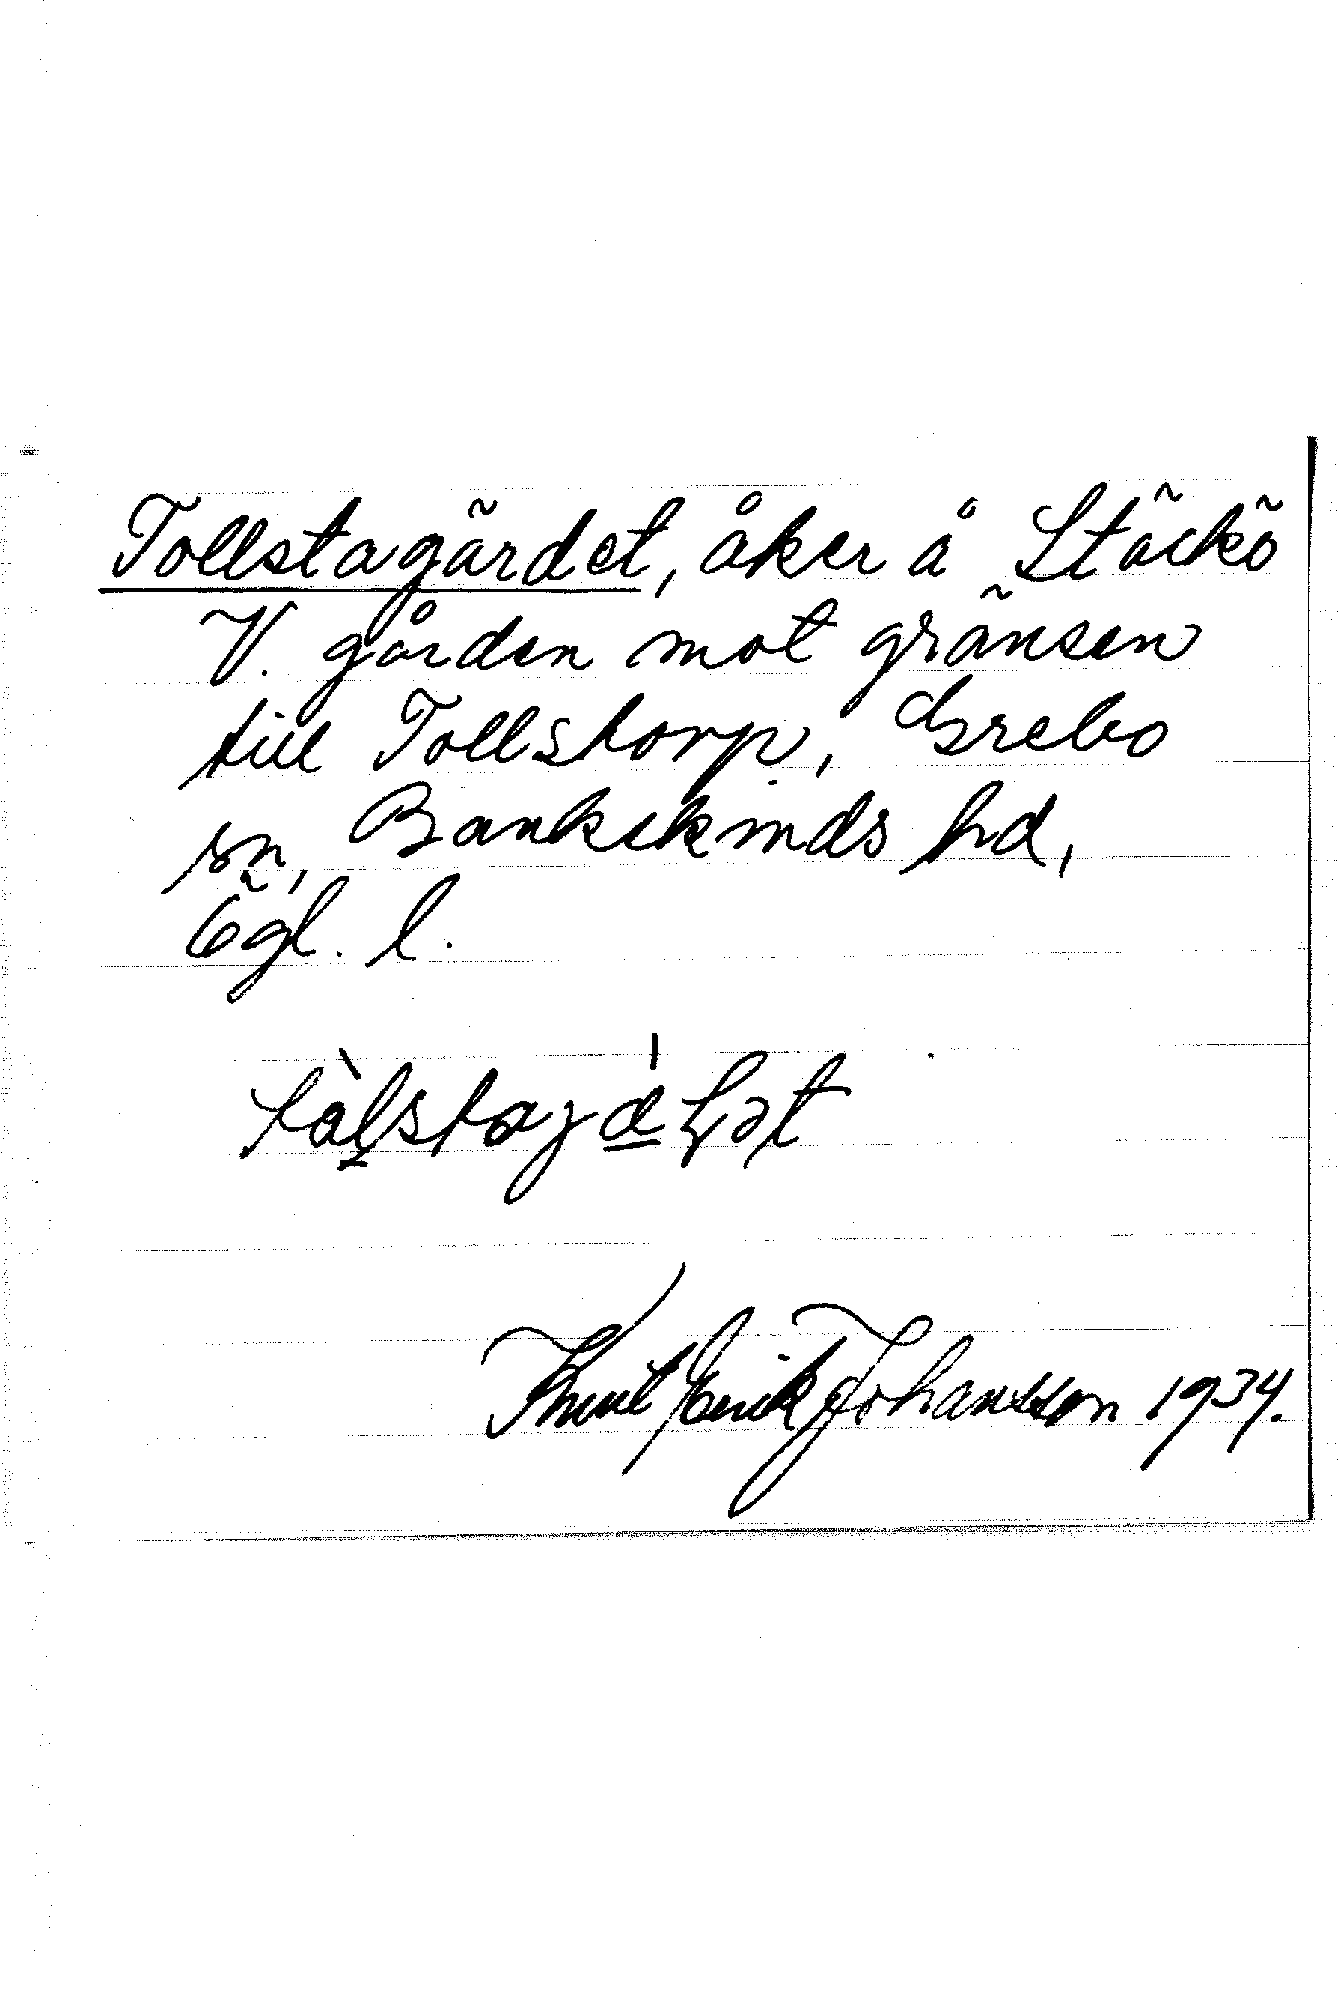 Tollstagärdet, åker å Stäckö
V. gården mot gränsen
till Tollstorp, Grebo
sn, Bankekinds hd,
Ögl. l.
Knut Erik Johansson 1934.